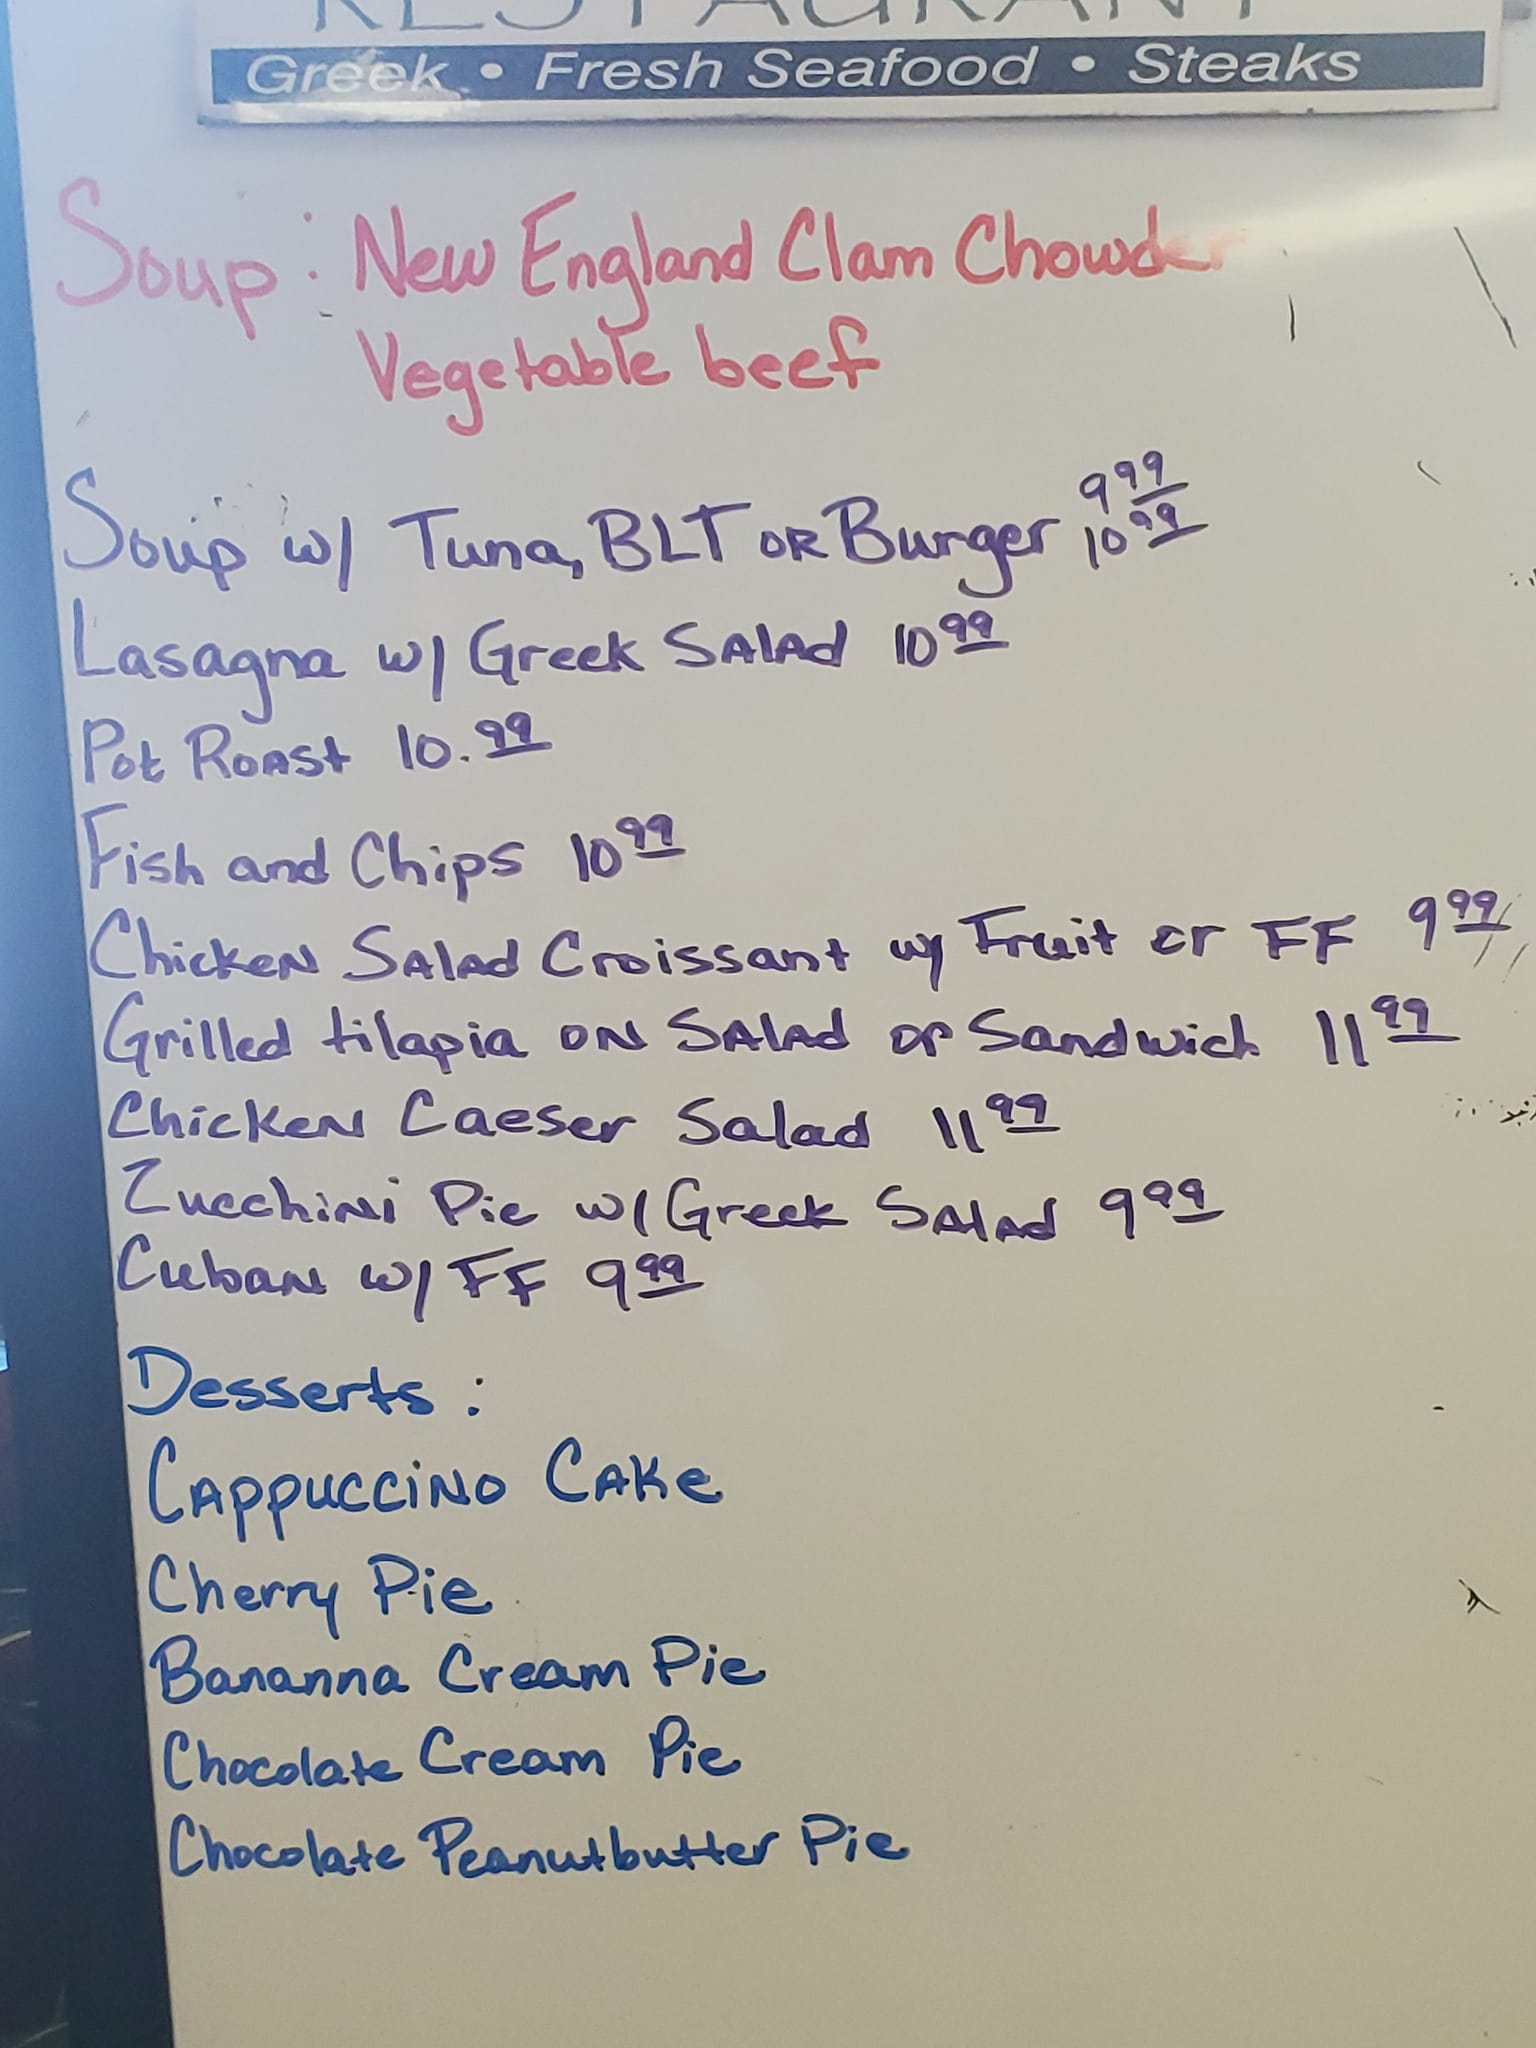 RESTAURANT
Greek • Fresh Seafood • Steaks
Soup: New England Clam Chowder
Vegetable beef
Soup w/ Tuna, BLT OR Burger 9 99 10 99
Lasagna w/ Greek Salad 10 99
Pot Roast 10.99
Fish and Chips 10 99
Chicken Salad Croissant w/ Fruit or FF 9 99
Grilled tilapia on Salad or Sandwich 11 99
Chicken Caeser Salad 11 99
Zucchini Pie w/ Greek Salad 9 99
Cuban w/ FF 9 99
Desserts:
Cappuccino Cake
Cherry Pie
Bananna Cream Pie
Chocolate Cream Pie
Chocolate Peanutbutter Pie